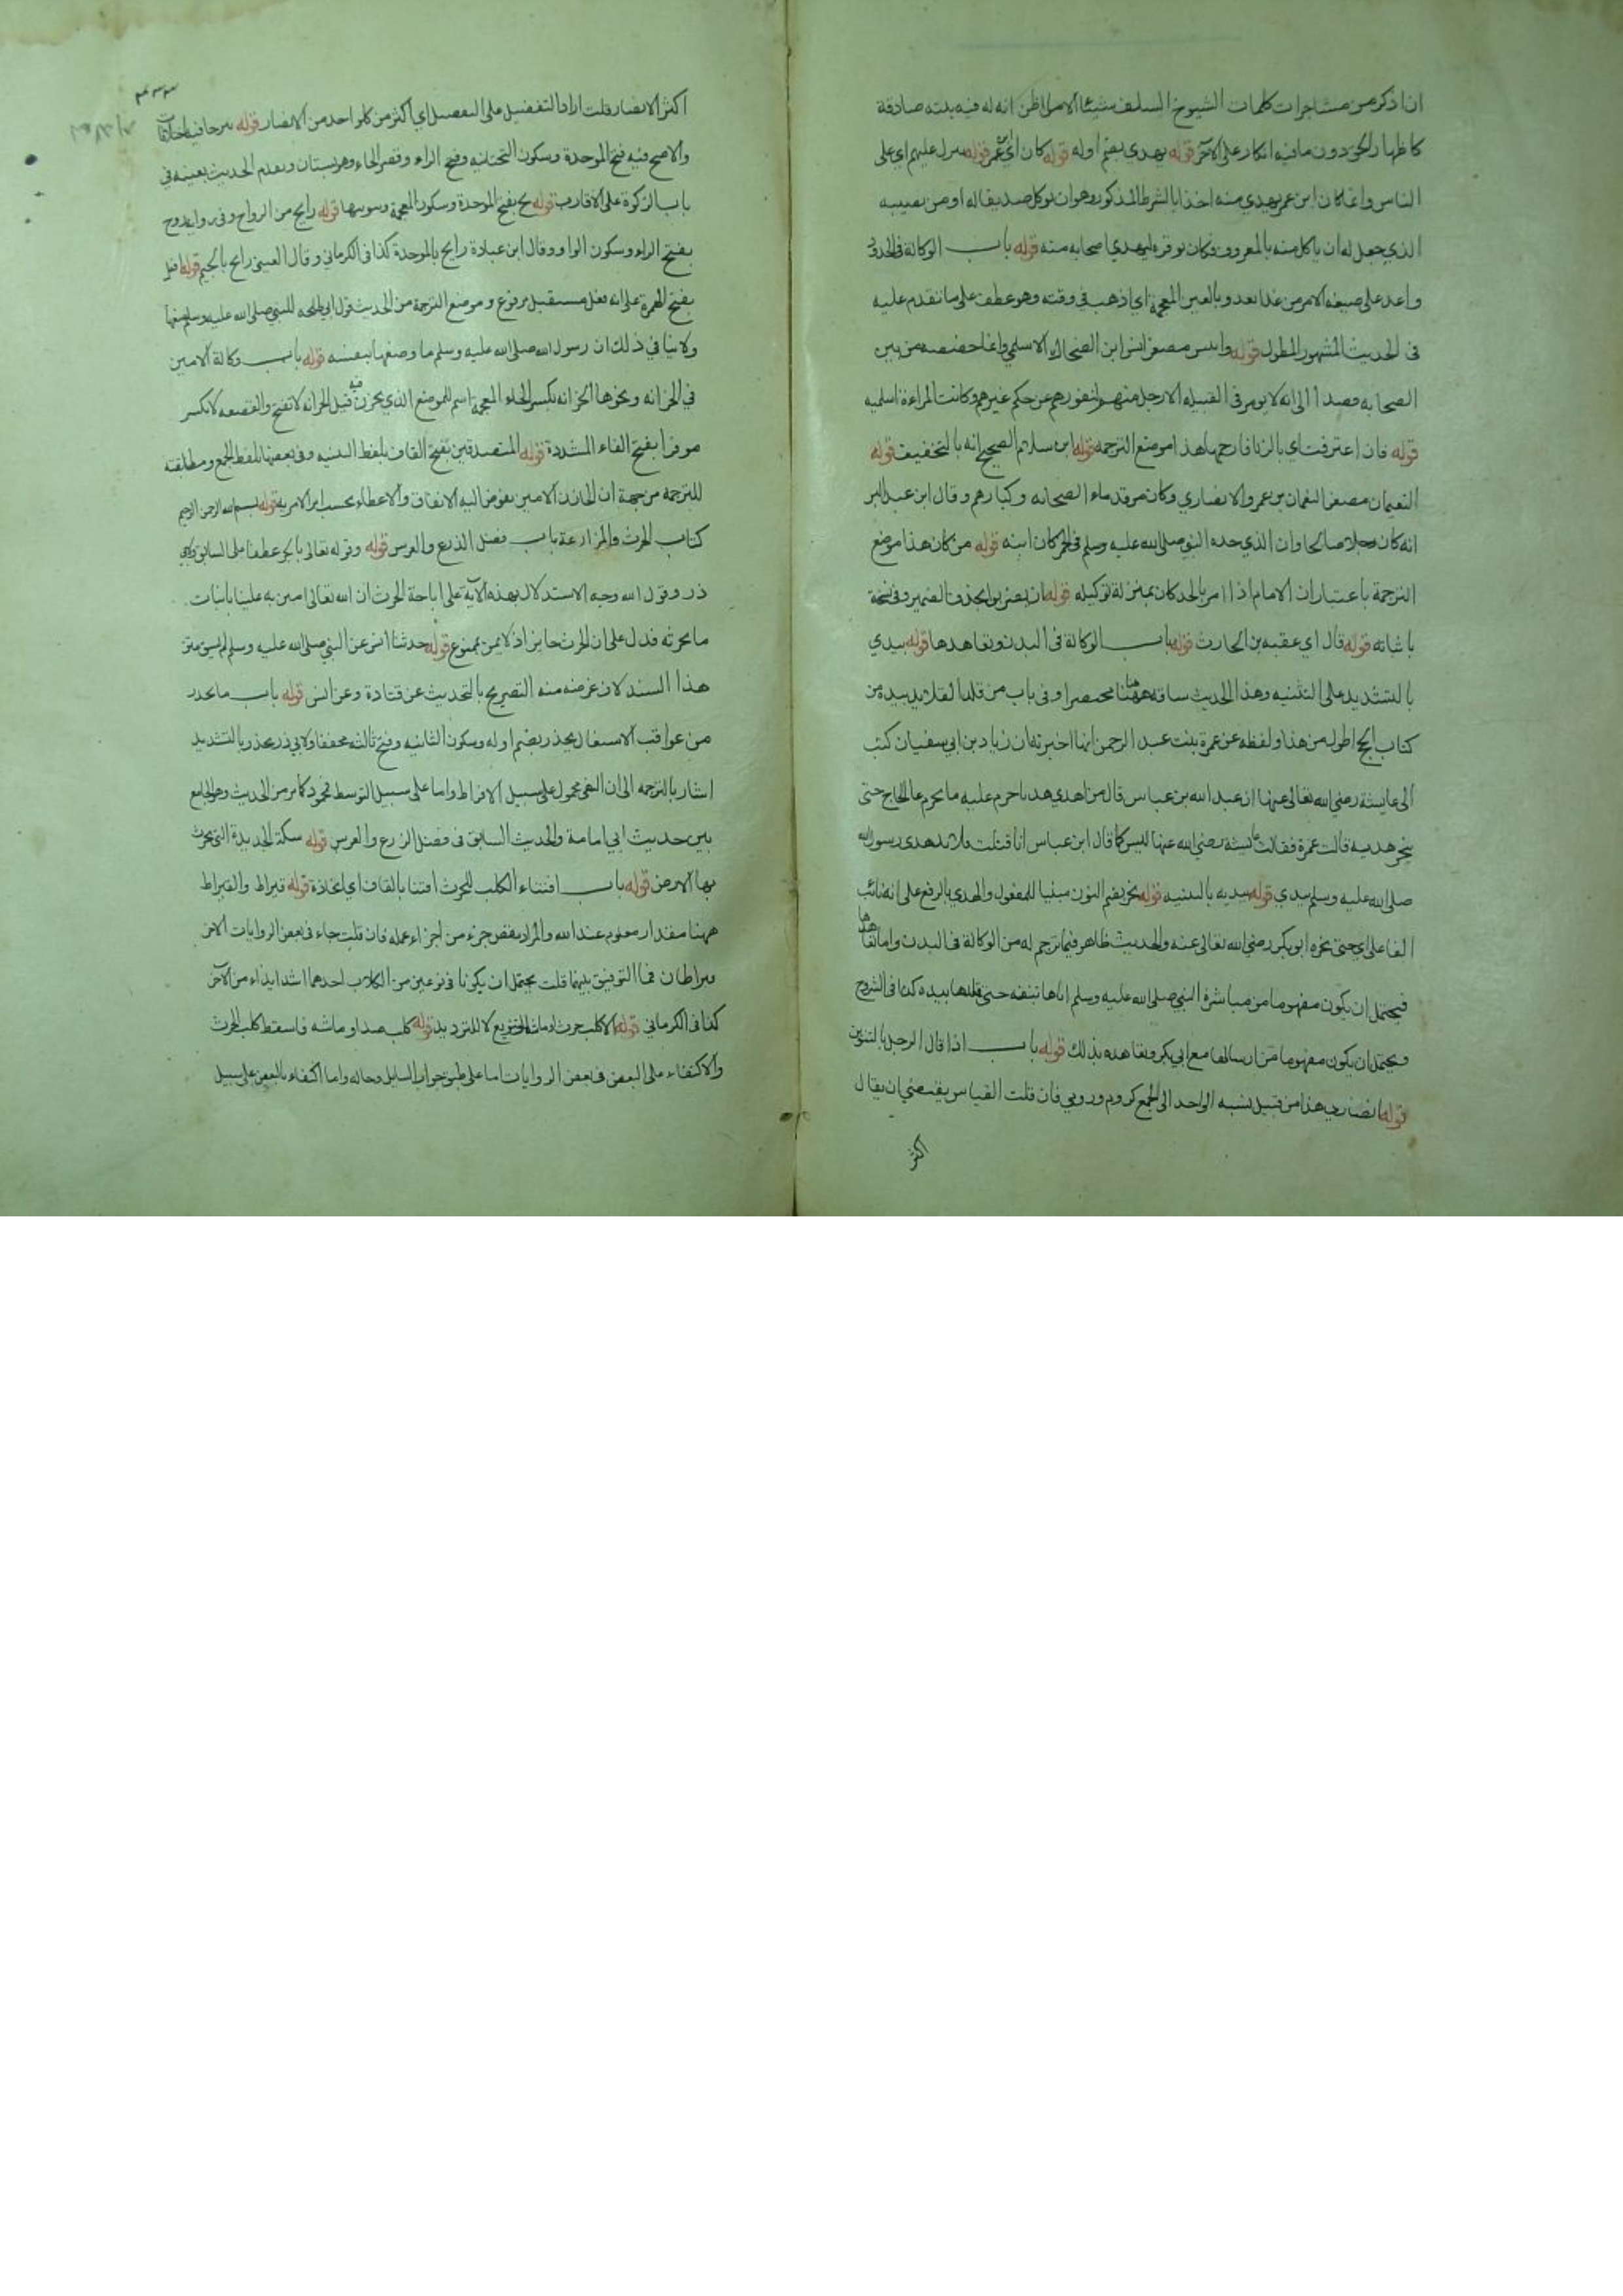 ان اذكر من مشاجرات كلمات الشيوخ السلف شيئا الا من اظن انه له فيه بنته صادقة
كاظهار الحق دون مافيه انكار على الآخر قوله يهدي بضم اوله قوله كان اي ابن عمر قوله ينزل عليهم اي على
الناس وانما كان ابن عمر يهدي منه اخذا بالشرط المذكور وهو ان يوكل صديقا له او من نصيبه
الذي جعل له ان ياكل منه بالمعروف فكان يوفره ليهدي اصحابه منه قوله باب الوكالة في الحدود
واغد على صيغة الامر من غدا يغدو بالغين المعجمة اي اذهب في وقته وهو عطف على ما تقدم عليه
في الحديث المشهور المطول قوله وانيس مصغر انس ابن الضحاك الاسلمي وانما خصصه من بين
الصحابه قصدا الى انه لا يومر في القبيله الا رجل منهم لنفورهم عن حكم غيرهم وكانت المراءة اسلميه
قوله فان اعترفت اي بالزنا فارجمها هذا موضع الترجمه قوله ابن سلام الصحيح انه بالتخفيف قوله
النعيمان مصغر النعمان بن عمرو الانصاري وكان من قدماء الصحابه وكبارهم وقال ابن عبد البر
انه كان رجلا صالحا وان الذي حده النبي صلى الله عليه وسلم في الخمر كان ابنه قوله من كان هذا موضع
الترجمة باعتبار ان الامام اذا امر بالحد كان بمنزلة توكيله قوله ان يضربوا بحذف الضمير وفي نسخة
باثباته قوله قال اي عقبه بن الحارث قوله باب الوكالة في البدن وتعاهدها قوله بيدي
بالتشديد على التثنيه وهذا الحديث ساقه ههنا مختصرا وفي باب من قلد القلائد بيده من
كتاب الحج اطول من هذا ولفظه عن عمرة بنت عبد الرحمن انها اخبرته ان زياد بن ابي سفيان كتب
الى عايشة رضي الله تعالى عنها ان عبد الله بن عباس قال من اهدي هديا حرم عليه ما يحرم على الحاج حتى
ينحر هديه قالت عمرة فقالت عائشة رضي الله عنها ليس كما قال ابن عباس انا فتلت قلائد هدي رسول الله
صلى الله عليه وسلم بيدي قوله بيديه بالتثنيه قوله نحر بضم النون مبنيا للمفعول والهدي بالرفع على انه نائب
الفاعل اي حتى نحره ابو بكر رضي الله تعالى عنه والحديث ظاهر فيما ترجم له من الوكالة في البدن واما تعاهدها
فيحتمل ان يكون مفهوما من مباشرة النبي صلى الله عليه وسلم اياها بنفسه حتى قلدها بيده كذا في الشروح
ويحتمل ان يكون مفهوما من ارسالها مع ابي بكر وتعاهده بذلك قوله باب اذا قال الرجل بالتنوين
قوله انصاري هذا من قبيل نسبه الواحد الى الجمع كروم ورومي فان قلت القياس يقتضي ان يقال
اكثر
اكثر الانصار قلت اراد التفضيل على التفصيل اي اكثر من كل واحد من الانصار قوله بيرحا فيه اختلافات
والاصح فيه فتح الموحدة وسكون التحتانيه وفتح الراء وقصر الحاء وهو بستان وتقدم الحديث بعينه في
باب الزكوة على الاقارب قوله بخ بفتح الموحدة وسكون المعجمة وتنوينها قوله رايح من الرواح وفي رواية روح
بفتح الراء وسكون الواو وقال ابن عبادة رابح بالموحدة كذا في الكرماني وقال العيني رايح بالجيم قوله افعل
بفتح الهمزة على انه فعل مستقبل مرفوع وموضع الترجمة من الحديث قول ابي طلحه للنبي صلى الله عليه وسلم ضعها
ولا ينافي ذلك ان رسول الله صلى الله عليه وسلم ما وضعها بنفسه قوله باب وكالة الامين
في الخزانه ونحوها الخزانه بكسر الخاء المعجمة اسم للموضع الذي يخزن فيه قيل الخزانه لا تفتح والقصعه لا تكسر
موفرا بفتح الفاء المشددة قوله المتصدقين بفتح القاف بلفظ التثنيه وفي بعضها بلفظ الجمع ومطابقته
للترجمة من جهة ان الخازن الامين يفوض اليه الانفاق والاعطاء بحسب امر الامر به قوله بسم الله الرحمن الرحيم
كتاب الحرث والمزارعة باب فضل الذرع والغرس قوله وقوله تعالى بالجر عطفا على السابق ولابي
ذر وقول الله وجه الاستدلال بهذه الآية على اباحة الحرث ان الله تعالى امتن به علينا بانبات
ما نحرثه فدل على ان الحرث جائز اذ لا يمن بممنوع قوله حدثنا انس عن النبي صلى الله عليه وسلم لم يسق متن
هذا السند لان غرضه منه التصريح بالتحديث عن قتادة وعن انس قوله باب ما يحذر
من عواقب الاشتغال يحذر بضم اوله وسكون الثانيه وفتح ثالثه مخففا ولابي ذر يحذر بالتشديد
اشار بالترجمه الى ان النهي محمول على سبيل الافراط واما على سبيل التوسط فمحمود كما مر من الحديث وهو الجامع
بين حديث ابي امامة والحديث السابق في فضل الزرع والغرس قوله سكة الحديدة التي يحرث
بها الارض قوله باب اقتناء الكلب للحرث اقتنا بالقاف اي اتخاذه قوله قيراط والقيراط
ههنا مقدار معلوم عند الله والمراد بنقص جزء من اجزاء عمله فان قلت جاء في بعض الروايات الاخر
قيراطان فما التوفيق بينهما قلت يحتمل ان يكونا في نوعين من الكلاب احدهما اشد ايذاء من الآخر
كذا في الكرماني قوله الا كلب حرث او ماشية للتنويع لا للترديد قوله كلب صيد او ماشه فاسقط كلب الحرث
والاكتفاء على البعض في بعض الروايات اما على طبق جواب السايل وحاله واما اكتفاء بالبعض على سبيل